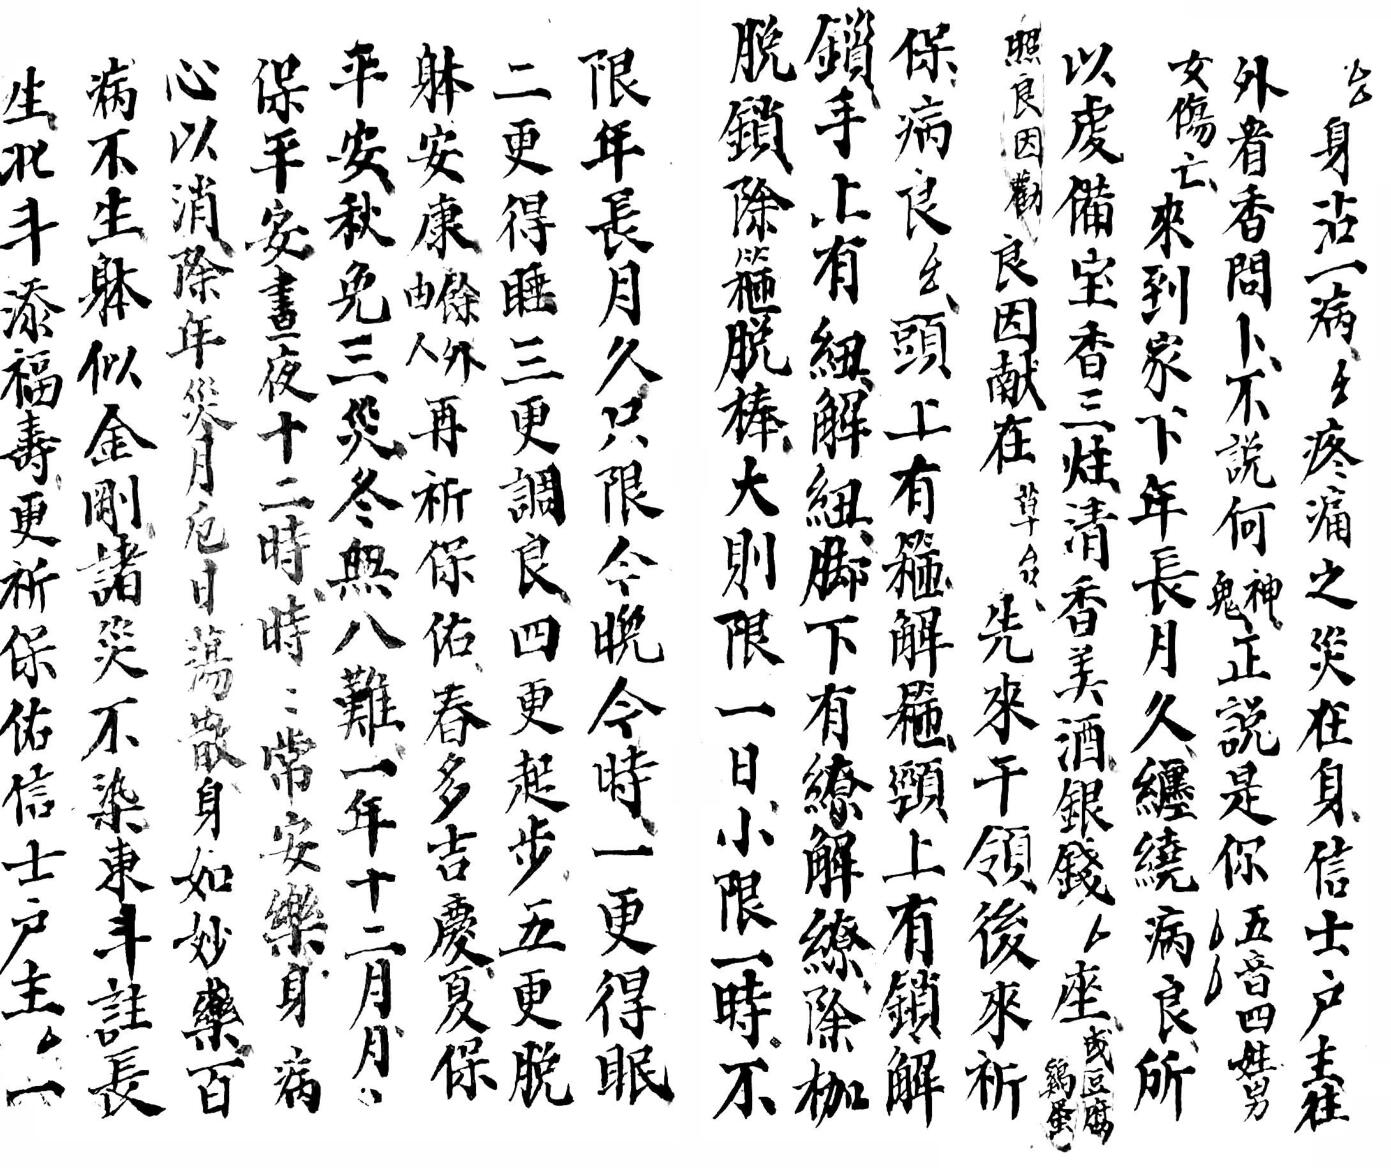 身沾一病疼痛之災在身信士户主往
外者香問卜不說何神鬼正說是你五音四姓男
女傷亡來到家下年長月久纏繞病良所
以虔備宝香三炷清香美酒銀錢座或豆腐鷄蛋
照良因勸良因献在草台先來干領後來祈
保病良頭上有箍解箍頸上有鎖解
鎖手上有紐解紐脚下有繚解繚除枷
脫鎖除箍脫棒大則限一日小限一時不
限年長月久只限今晚今時一更得眠
二更得睡三更調良四更起步五更脫
躰安康餘外由人再祈保佑春多吉慶夏保
平安秋免三災冬無八難一年十二月月〻
保平安晝夜十二時時〻常安樂身病
心以消除年災月厄日蕩散身如妙藥百
病不生躰似金剛諸災不染東斗註長
生北斗添福壽更祈保佑信士户主一